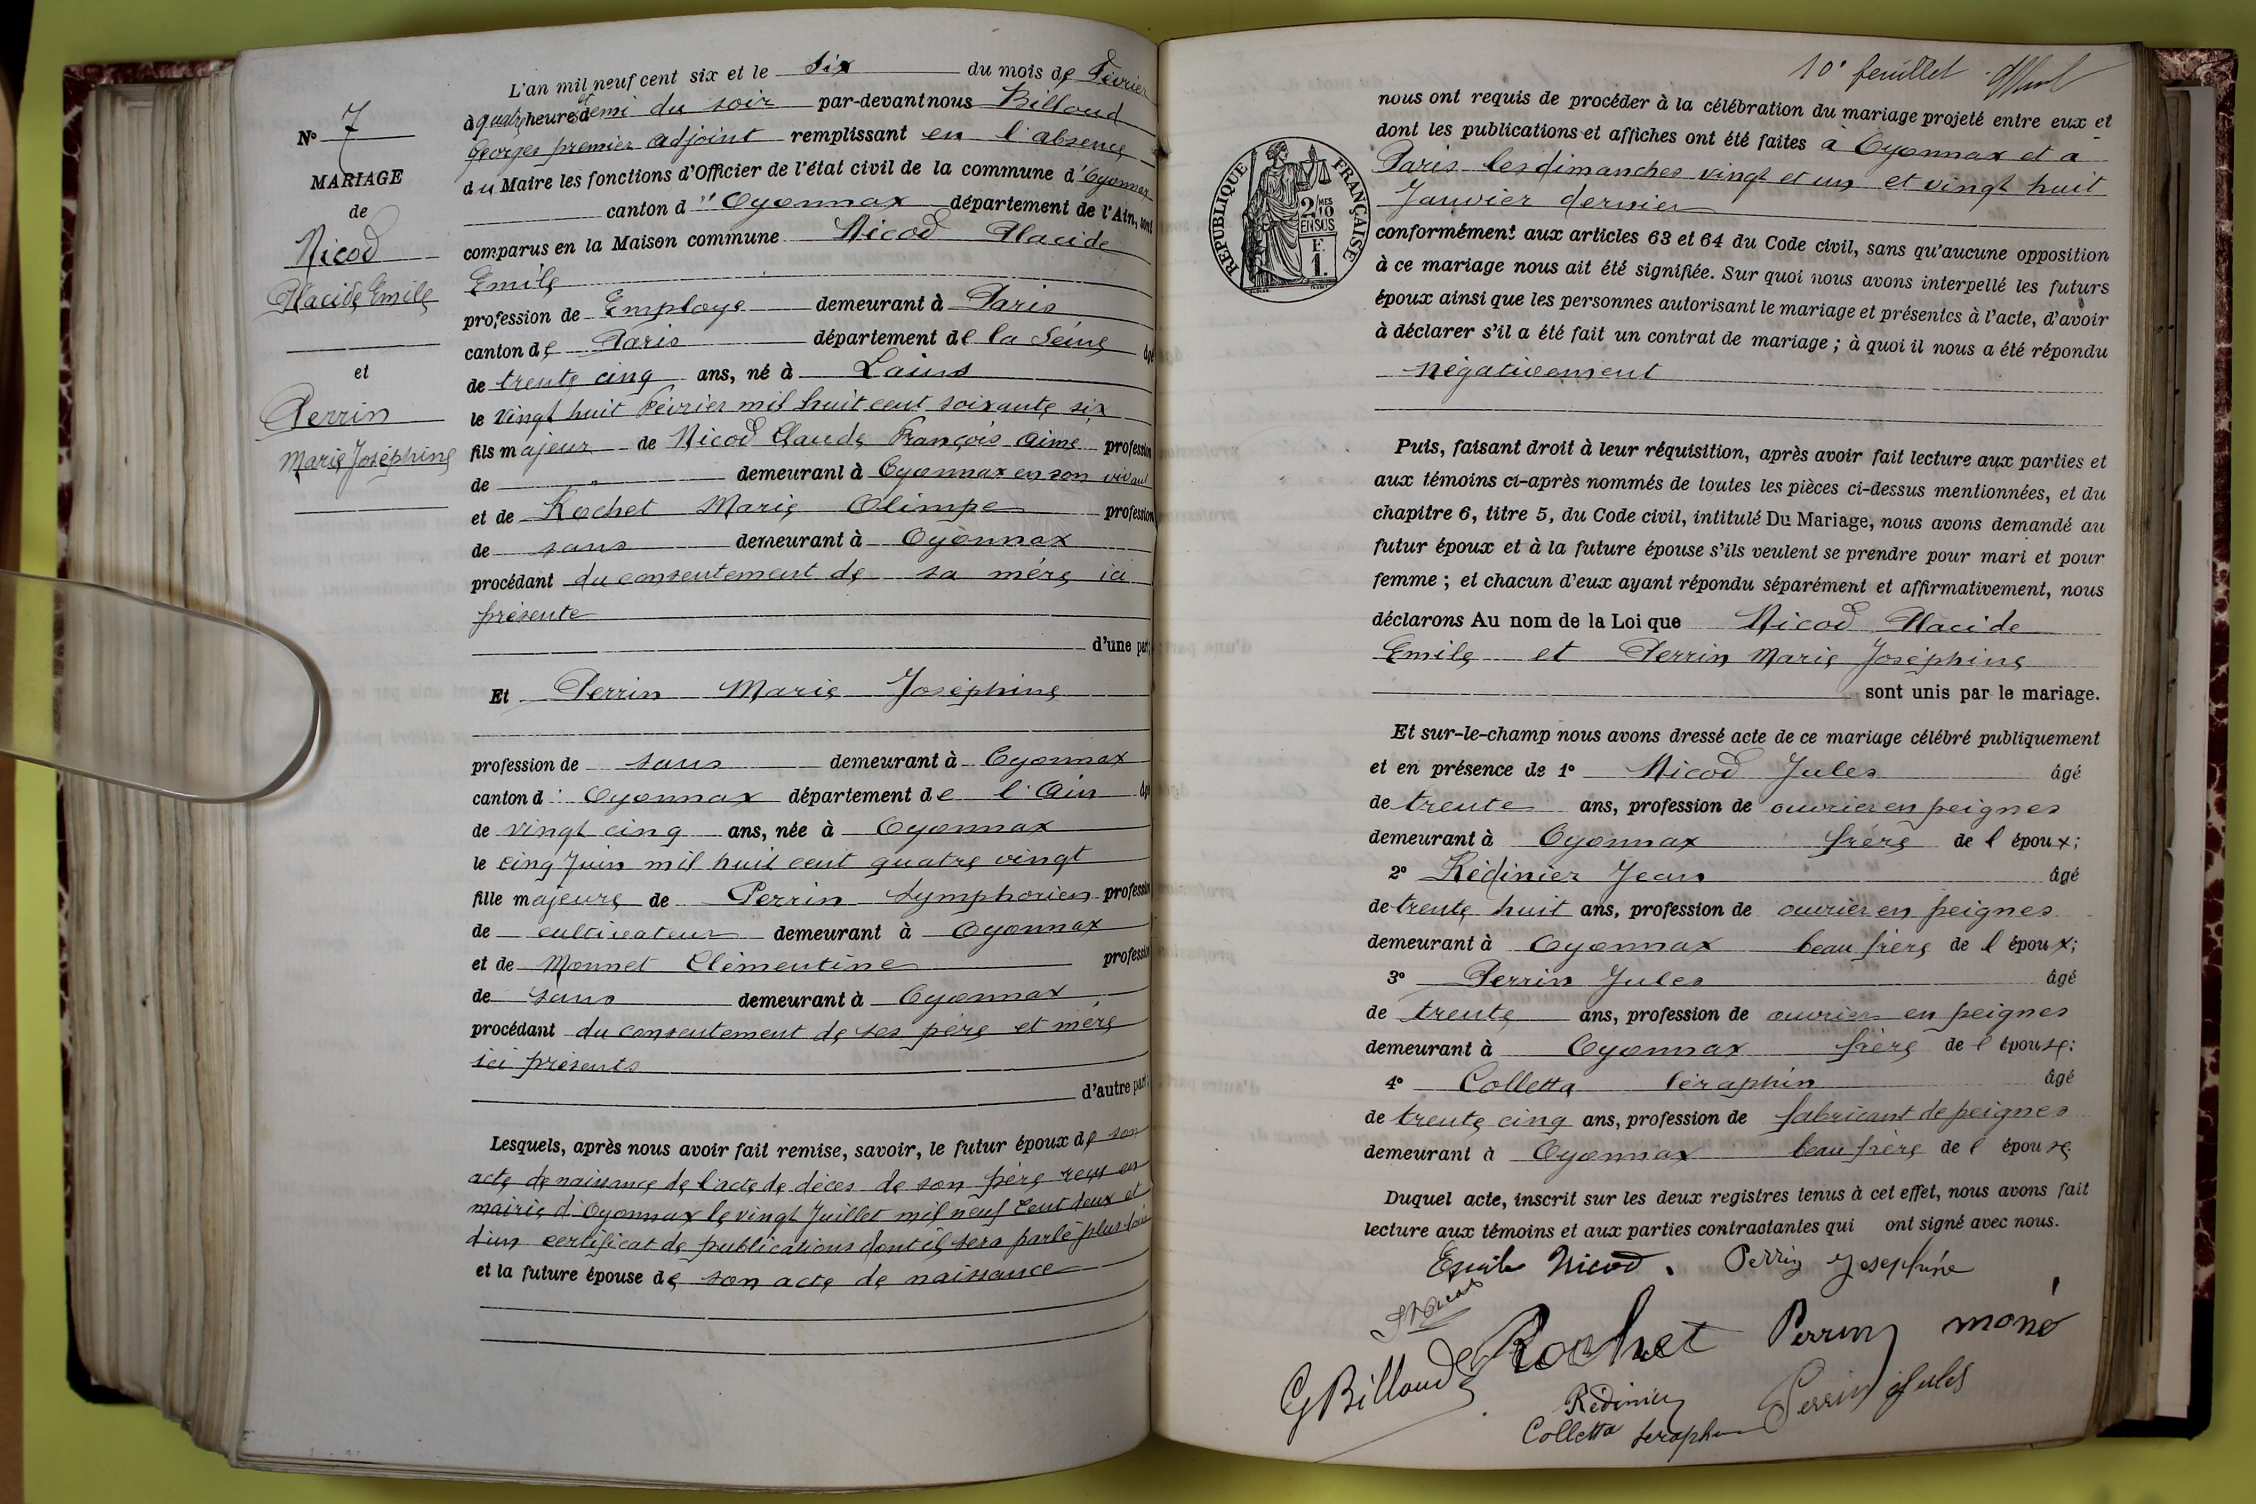 N° 7
MARIAGE
de
Nicod
Placide Emile
et
Perrin
Marie Joséphine
L'an mil neuf cent six et le six du mois de Février
à quatre heures et demi du soir par-devant nous Billoud
Georges premier adjoint remplissant en l'absence
du Maire les fonctions d'Officier de l'état civil de la commune d'Oyonnax
canton d'Oyonnax département de l'Ain, sont
comparus en la Maison commune Nicod Placide
Emile
profession de Employé demeurant à Paris
canton de Paris département de la Seine âgé
de trente cinq ans, né à Lains
le vingt huit Février mil huit cent soixante six
fils majeur de Nicod Claude François Aimé profession
de " demeurant à Oyonnax en son vivant
et de Rochet Marie Olimpe profession
de sans demeurant à Oyonnax
procédant du consentement de sa mère ici
présente
d'une part;
Et Perrin Marie Joséphine
profession de sans demeurant à Oyonnax
canton d'Oyonnax département de l'Ain âgé
de vingt cinq ans, née à Oyonnax
le cinq Juin mil huit cent quatre vingt
fille majeure de Perrin Symphorien profession
de cultivateur demeurant à Oyonnax
et de Monnet Clémentine profession
de sans demeurant à Oyonnax
procédant du consentement de ses père et mère
ici présents
d'autre part;
Lesquels, après nous avoir fait remise, savoir, le futur époux de son
acte de naissance de l'acte de décès de son père reçu en
mairie d'Oyonnax le vingt Juillet mil neuf cent deux et
d'un certificat de publications dont il sera parlé plus loin
et la future épouse de son acte de naissance
10e feuillet
RÉPUBLIQUE FRANÇAISE
2/10 MES
EN SUS
F.
1.
nous ont requis de procéder à la célébration du mariage projeté entre eux et
dont les publications et affiches ont été faites à Oyonnax et à
Paris les dimanches vingt et un et vingt huit
Janvier dernier
conformément aux articles 63 et 64 du Code civil, sans qu'aucune opposition
à ce mariage nous ait été signifiée. Sur quoi nous avons interpellé les futurs
époux ainsi que les personnes autorisant le mariage et présentes à l'acte, d'avoir
à déclarer s'il a été fait un contrat de mariage ; à quoi il nous a été répondu
négativement
Puis, faisant droit à leur réquisition, après avoir fait lecture aux parties et
aux témoins ci-après nommés de toutes les pièces ci-dessus mentionnées, et du
chapitre 6, titre 5, du Code civil, intitulé Du Mariage, nous avons demandé au
futur époux et à la future épouse s'ils veulent se prendre pour mari et pour
femme ; et chacun d'eux ayant répondu séparément et affirmativement, nous
déclarons Au nom de la Loi que Nicod Placide
Emile et Perrin Marie Joséphine
sont unis par le mariage.
Et sur-le-champ nous avons dressé acte de ce mariage célébré publiquement
et en présence de 1° Nicod Jules âgé
de trente ans, profession de ouvrier en peignes
demeurant à Oyonnax frère de l'époux;
2° Rédinier Jean âgé
de trente huit ans, profession de ouvrier en peignes
demeurant à Oyonnax beau frère de l'époux;
3° Perrin Jules âgé
de trente ans, profession de ouvrier en peignes
demeurant à Oyonnax frère de l'épouse;
4° Colletta Séraphin âgé
de trente cinq ans, profession de fabricant de peignes
demeurant à Oyonnax beau frère de l'épouse
Duquel acte, inscrit sur les deux registres tenus à cet effet, nous avons fait
lecture aux témoins et aux parties contractantes qui ont signé avec nous.
Emile Nicod. Perrin Joséphine
J Nicod
G Billoud Rochet Perrin moné
Rédinier Perrin Jules
Colletta Seraphin